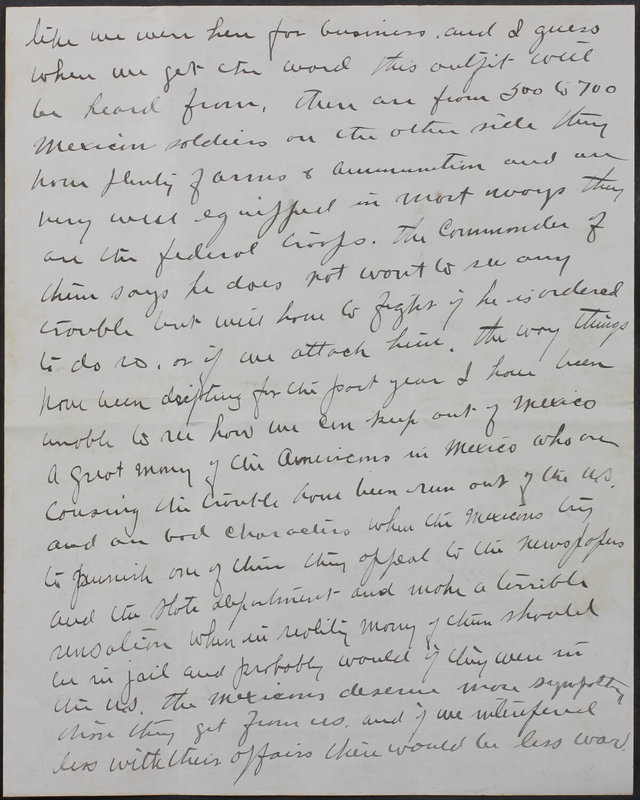 like we were here for business. and I guess
when we get the word this outfit will
be heard from. there are from 500 to 700
Mexican soldiers on the other side they
have plenty of arms & ammunition and are
very well equipped in most ways they
are the federal troops. The Commander of
them says he does not want to see any
trouble but will have to fight if he is ordered
to do so. or if we attack him. the way things
have been drifting for the past year I have been
unable to see how we can keep out of Mexico
A great many of the Americans in Mexico who are
Causing the trouble have been run out of the U.S.
and are bad characters when the Mexicans try
to punish one of them they appeal to the newspapers
and the state department and make a terrible
sensation when in reality many of them should
be in jail and probably would if they were in
the U.S. the Mexicans deserve more sympathy
than they get from us. and if we interfered
less with their affairs there would be less war.